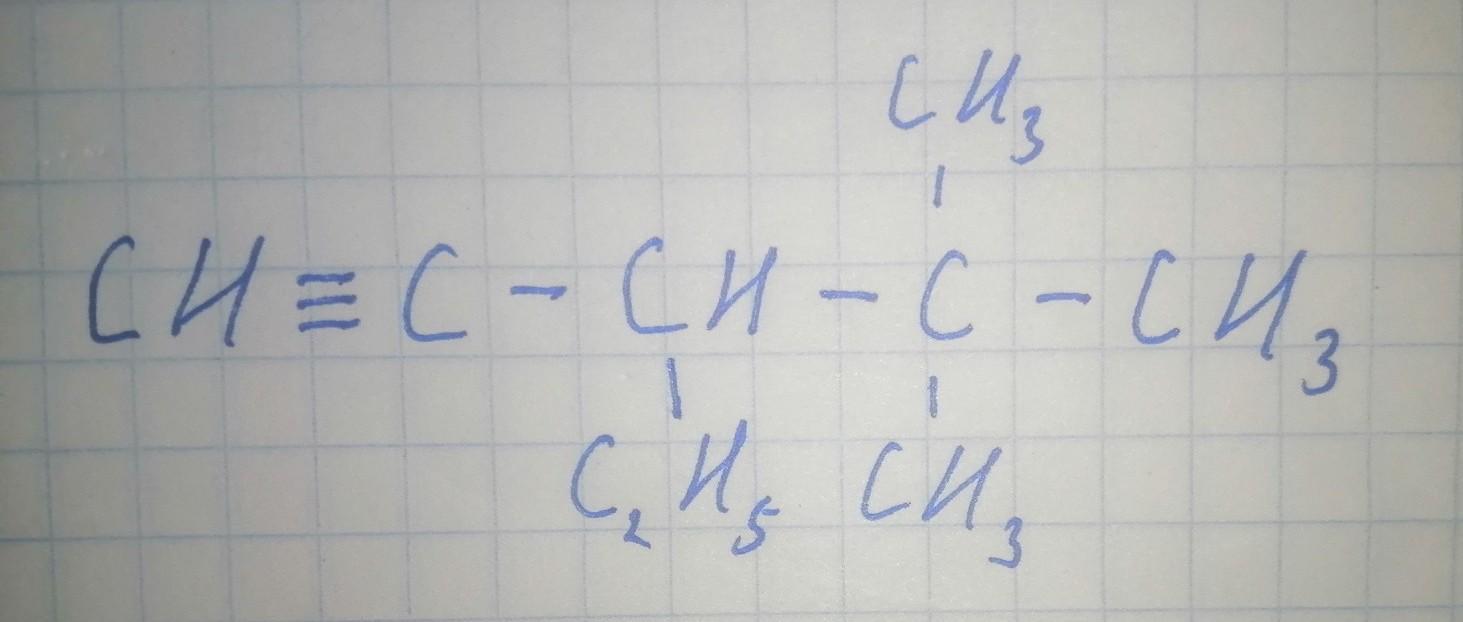 CH₃
CH≡C-CH-C-CH₃
C₂H₅ CH₃